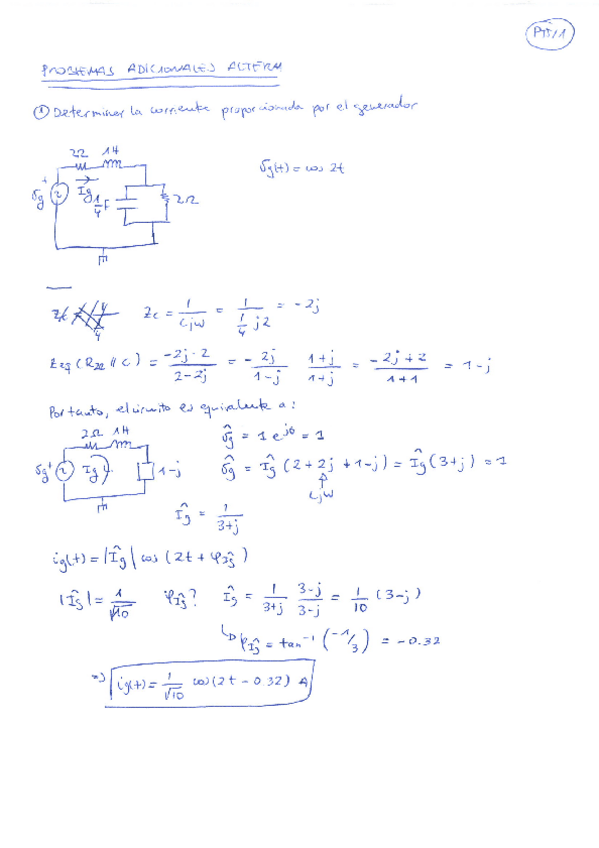 PTS/1
PROBLEMAS ADICIONALES ALTERN
① Determinar la corriente proporcionada por el generador
2Ω 1H
v̂g + Ig 1/4 F 2Ω
vg(t) = cos 2t
Zc = 1/(Cjω) = 1/(1/4 j2) = -2j
Zeq (R2Ω // C) = (-2j·2)/(2-2j) = - 2j/(1-j) (1+j)/(1+j) = (-2j+2)/(1+1) = 1-j
Por tanto, el circuito es equivalente a:
2Ω 1H
vg + Ig 1-j
v̂g = 1 e^j0 = 1
v̂g = Îg (2 + 2j + 1-j) = Îg (3+j) = 1
Ljω
Îg = 1/(3+j)
ig(t) = |Îg| cos (2t + φÎg)
|Îg| = 1/√10 φÎg? Îg = 1/(3+j) (3-j)/(3-j) = 1/10 (3-j)
↳ φÎg = tan⁻¹ (-1/3) = -0.32
⇒ ig(t) = 1/√10 cos(2t - 0.32) A